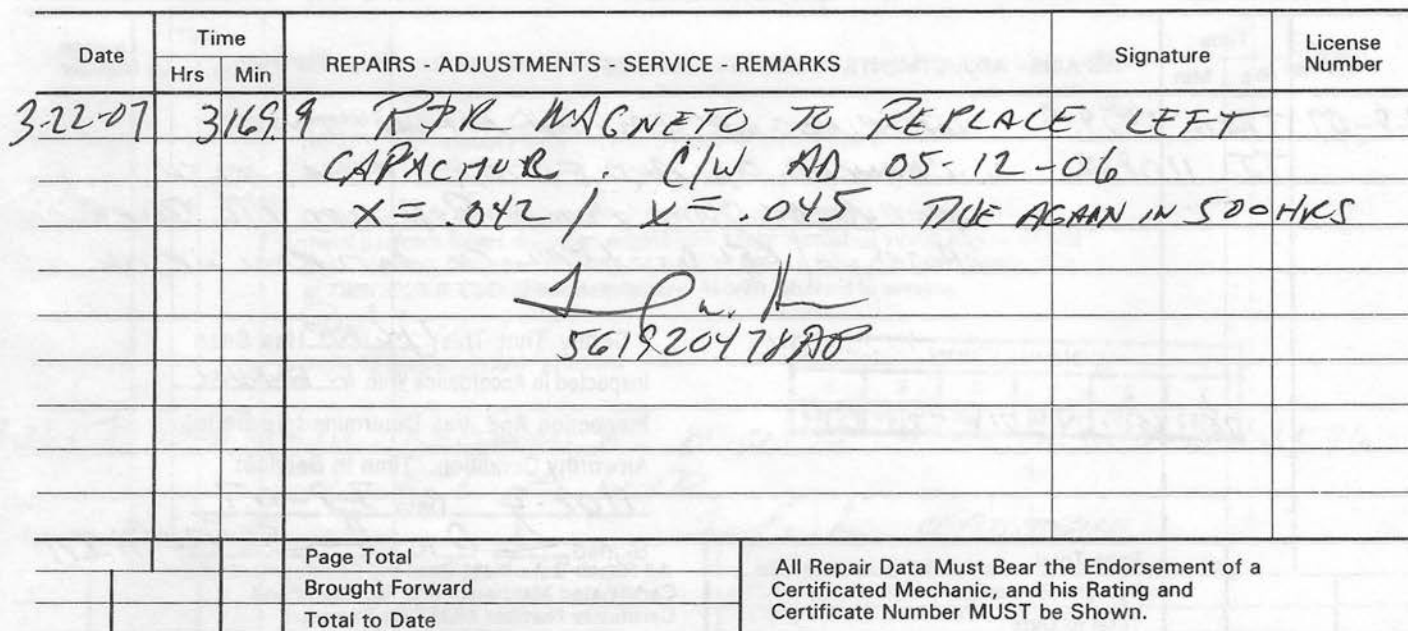 Date
Time
Hrs Min
REPAIRS - ADJUSTMENTS - SERVICE - REMARKS
Signature
License
Number
3-22-07 3169.9 R&R MAGNETO TO REPLACE LEFT
CAPACITOR. C/W AD 05-12-06
X=.042 / X=.045 DUE AGAIN IN 500HRS
561920478AP
Page Total
Brought Forward
Total to Date
All Repair Data Must Bear the Endorsement of a
Certificated Mechanic, and his Rating and
Certificate Number MUST be Shown.